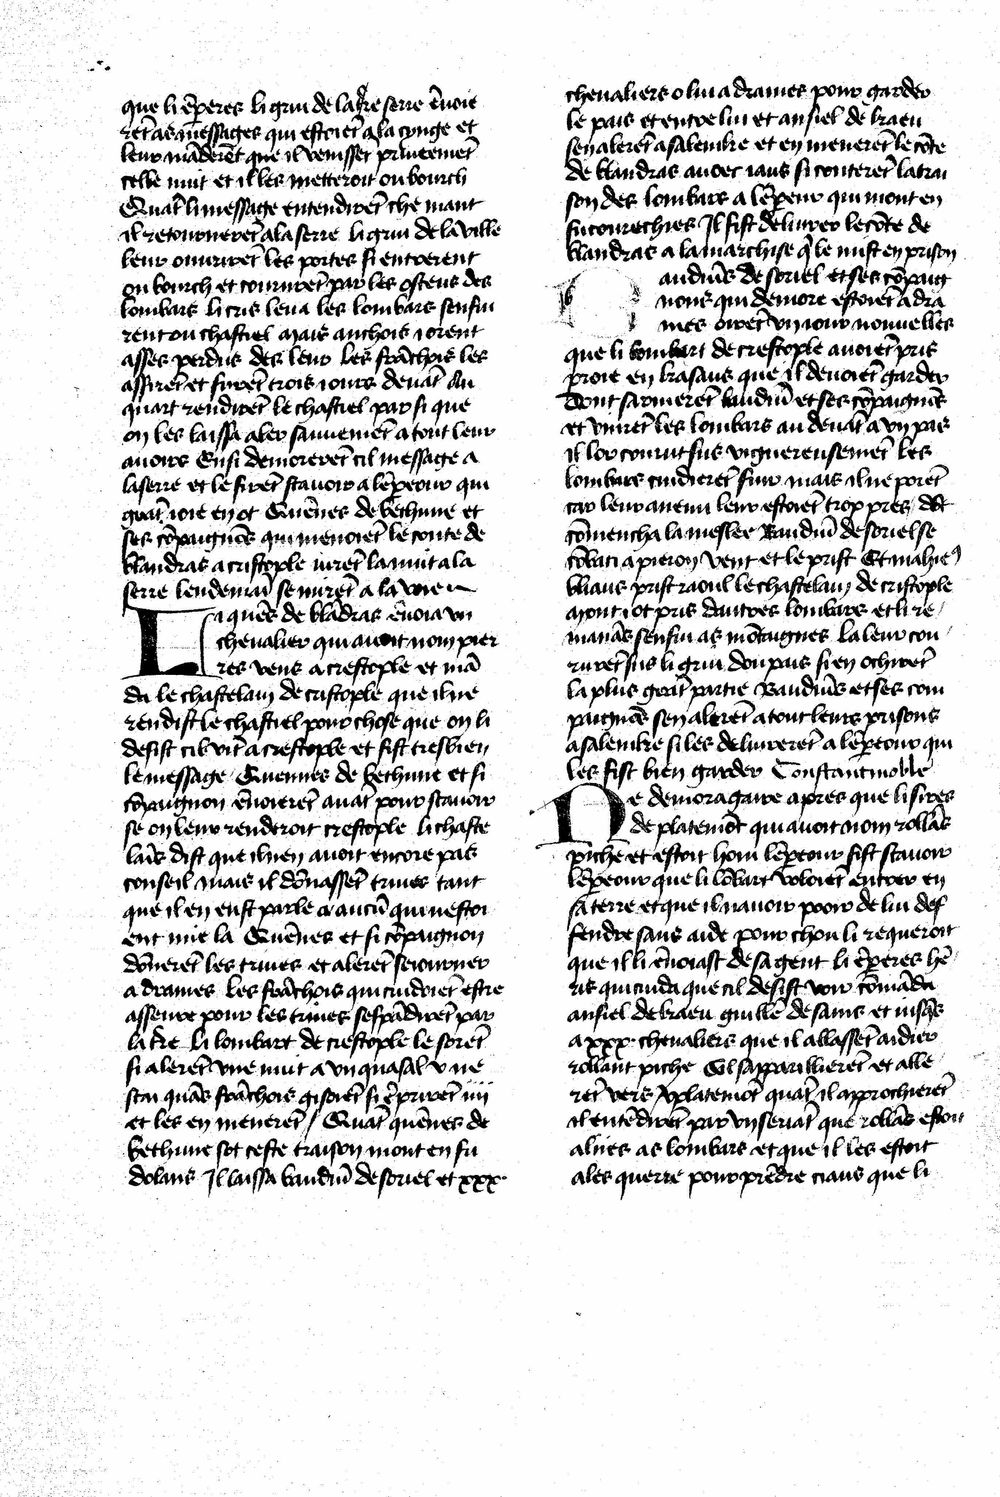 que li ēperes li griu de la t̄re serre ēuoie
rēt as messages qui estoiēt a la conge et
leur māderēt que il venissēt priueemēt
celle nuit et il les metteroit ou bourch
Quāt li message entendirēt che mant
il retournerēt a la serre li griu de la ville
leur ouurirēt les portes si entrerent
ou bourch et coururēt par les ostens des
lombars li cris leua les lombars senfui
rent ou chastiel mais anchois i orent
asses perdus des leur les frāchois les
assirēt et furēt trois iours deuāt Au
quart rendirēt le chastiel par si que
on les laissa aler sauuemēt a tout leur
auoirs Ensi demorerēt cil message a
la serre et le firēt sauoir a lēpeour qui
grāt ioie en ot Quēnes de bethune et
ses cōpaignōs qui menoiēt le conte de
blandras a cristople iurēt la nuit a la
serre lendemaī se mirēt a la voie
La quēs de blādras ēuoia vn
cheualier qui auoit nom pier
res vens a crestople et mā
da le chastelain de cristople que il ne
rendist le chastiel pour chose que on li
desist cil vīt a crestople et fist tresbien
le message Quennes de bethune et si
cōpaignon ēuoierēt auāt pour scauoir
se on leur renderoit crestople li chaste
lains dist que il nen auoit encore pas
conseil mais il dōnassēt triues tant
que il en eust parle a aucū qui nestoi
ent mie la Quēnes et si cōpaignon
dōnerēt les triues et alerēt seiourner
a drames les frāchois qui cuidoiēt estre
asseure pour les triues sespādirēt par
la t̄re li lombart de crestople le sorēt
si alerēt vne nuit a vn quasal v ne
scai quās frāchois gisoiēt si ē prirēt iiii
et les en menerēt / Quāt quēnes de
bethune sot ceste traison mout en fu
dolans Il laissa bauduī de soriel et xxx
cheualiers o lui a drames pour garder
le pais et entre lui et ansiel de braeu
sen alerēt a salenike et en menerēt le cōte
de blandras auoec iaus si conterēt la trai
son des lombars a lēpeur qui mout en
fu courechies Il fist deliurer le cōte de
blandras a la marchise q̄ le mist en prison
auduīs de soriel et ses cōpaig
nons qui demore estoiēt a dra
mes oirēt vn iour nouuelles
que li lombart de crestople auoiēt pris
proie en brasaus que il deuoiēt garder
Dont sarmerēt bauduī et ses cōpaignōs
et virēt les lombars au deuāt a vn pas
il lor courut sus viguereusemēt les
lombars cuidierēt fuir mais il ne porēt
car leur anemi leur estoiēt trop pres / dōt
cōmencha la meslee Bauduī de soriel se
cōbati a pieron vent et le prist Et mahieu
bliaus prist raoul le chastelain de cristople
mont i ot pris dautres lombars et li re /
manās senfui as mōtaignes la leur cou /
rurēt sus li griu dou pais si en ochirēt
la plus grāt partie Bauduīs et ses com
paignōs sen alerēt a tout leurs prisons
a salenike si les deliurerēt a lēpeour qui
les fist bien garder Constantinoble
Ne demora gaire apres que li sires
de platemōt qui auoit nom rollās
piche et estoit hom lēpeour fist scauoir
lēpeour que li lōbart voloiēt entrer en
sa terre et que il nauoir pooir de lui def
fendre sans aide pour chou li requeroit
que il li ēuoiast de sa gent li ēperes hē
ris qui cuida que cil desist voir cōmāda
ansiel de braeu guill̄e de sains et
a xxx cheualiers que il alassēt aidier
rollant piche Cil sapparillierēt et alle
rēt vers platemōt quāt il approchierēt
il entēdirēt par vn seriāt que rollās estoit
alijes as lombars et que il les estoit
ales querre pour prēdre ciaus que li